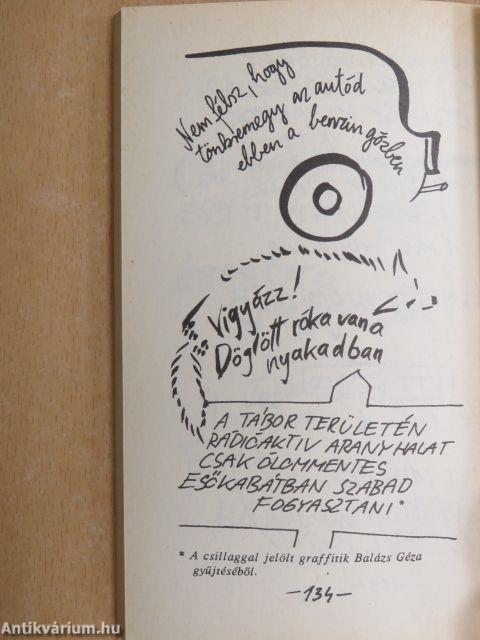 Nem félsz, hogy
tönkremegy az autód
ebben a benzin gőzben
Vigyázz!
Döglött róka van a
nyakadban
A TÁBOR TERÜLETÉN
RADIOAKTIV ARANYHALAT
CSAK ÓLOMMENTES
ESŐKABÁTBAN SZABAD
FOGYASZTANI*
* A csillaggal jelölt graffitik Balázs Géza
gyűjtéséből.
-134-
Antikvárium.hu